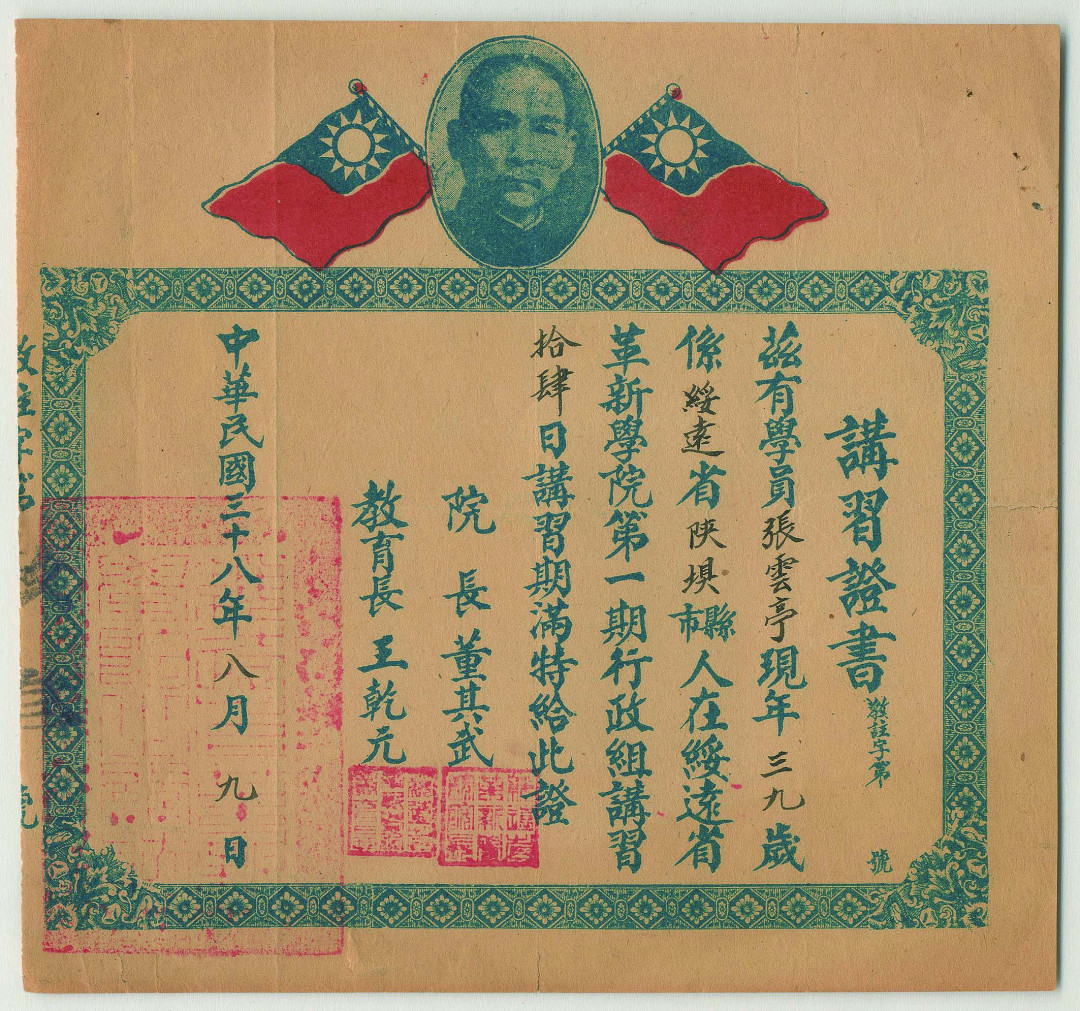 講習證書
教註字第 號
茲有學員張雲亭現年三九歲
係綏遠省陝垻縣市人在綏遠省
革新學院第一期行政組講習
拾肆日講習期滿特給此證
院長董其武
教育長王乾元
中華民國三十八年八月九日